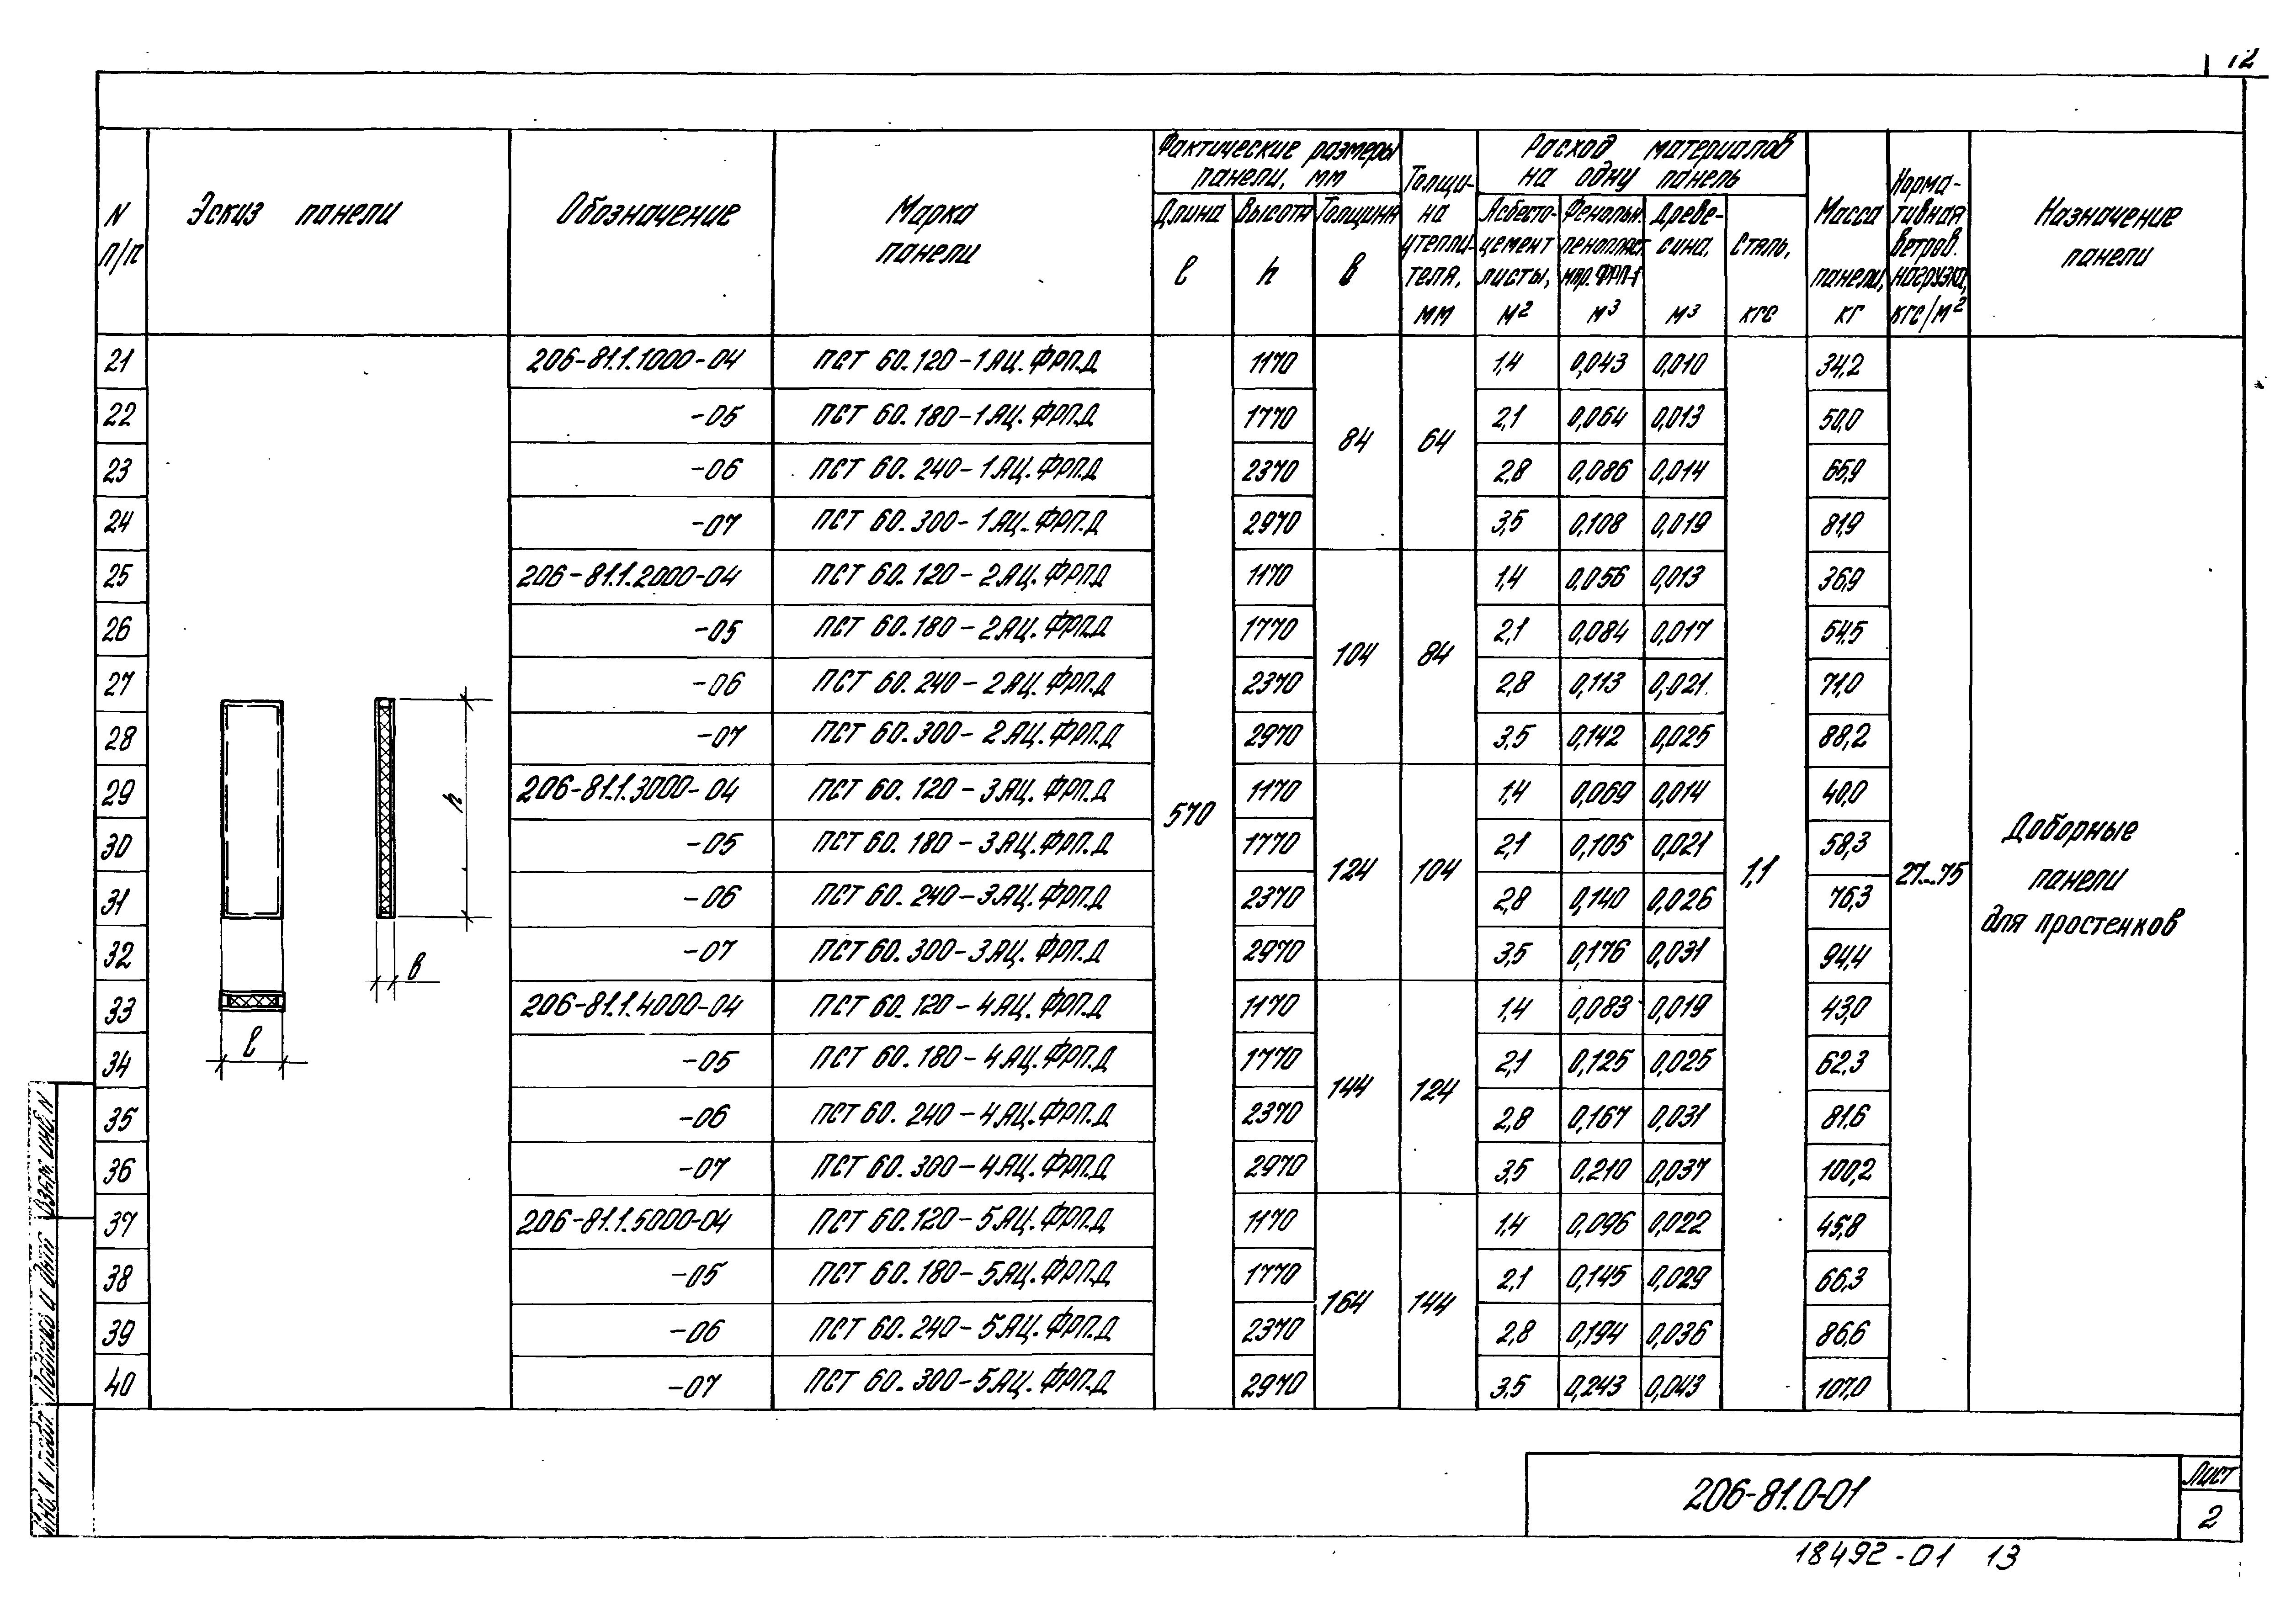 12
N п/п
Эскиз панели
Обозначение
Марка панели
Фактические размеры панели, мм
Длина l
Высота h
Толщина в
Толщи-на утепли-теля, мм
Расход материалов на одну панель
Асбесто-цемент листы, м2
Фенольн. пенопласт мар. ФРП-1 м3
Древе-сина, м3
Сталь, кгс
Масса панели, кг
Норма-тивная ветров. нагрузка, кгс/м2
Назначение панели
21 206-81.1.1000-04 ПСТ 60.120-1.АЦ.ФРП.Д 1170 1,4 0,043 0,010 34,2
22 -05 ПСТ 60.180-1.АЦ.ФРП.Д 1770 2,1 0,064 0,013 50,0
84 64
23 -06 ПСТ 60.240-1.АЦ.ФРП.Д 2370 2,8 0,086 0,014 65,9
24 -07 ПСТ 60.300-1.АЦ.ФРП.Д 2970 3,5 0,108 0,019 81,9
25 206-81.1.2000-04 ПСТ 60.120-2.АЦ.ФРП.Д 1170 1,4 0,056 0,013 36,9
26 -05 ПСТ 60.180-2.АЦ.ФРП.Д 1770 2,1 0,084 0,017 54,5
104 84
27 -06 ПСТ 60.240-2.АЦ.ФРП.Д 2370 2,8 0,113 0,021 71,0
28 -07 ПСТ 60.300-2.АЦ.ФРП.Д 2970 3,5 0,142 0,025 88,2
29 206-81.1.3000-04 ПСТ 60.120-3.АЦ.ФРП.Д 1170 1,4 0,069 0,014 40,0
570
30 -05 ПСТ 60.180-3.АЦ.ФРП.Д 1770 2,1 0,105 0,021 58,3
124 104 1,1 27...75
Доборные
панели
для простенков
31 -06 ПСТ 60.240-3.АЦ.ФРП.Д 2370 2,8 0,140 0,026 76,3
32 -07 ПСТ 60.300-3.АЦ.ФРП.Д 2970 3,5 0,176 0,031 94,4
33 206-81.1.4000-04 ПСТ 60.120-4.АЦ.ФРП.Д 1170 1,4 0,083 0,019 43,0
34 -05 ПСТ 60.180-4.АЦ.ФРП.Д 1770 2,1 0,125 0,025 62,3
144 124
35 -06 ПСТ 60.240-4.АЦ.ФРП.Д 2370 2,8 0,167 0,031 81,6
36 -07 ПСТ 60.300-4.АЦ.ФРП.Д 2970 3,5 0,210 0,037 100,2
37 206-81.1.5000-04 ПСТ 60.120-5.АЦ.ФРП.Д 1170 1,4 0,096 0,022 45,8
38 -05 ПСТ 60.180-5.АЦ.ФРП.Д 1770 2,1 0,145 0,029 66,3
164 144
39 -06 ПСТ 60.240-5.АЦ.ФРП.Д 2370 2,8 0,194 0,036 86,6
40 -07 ПСТ 60.300-5.АЦ.ФРП.Д 2970 3,5 0,243 0,043 107,0
h
в
l
Взам. инв. N
Подпись и дата
Инв. N подл.
206-81.0-01
Лист
2
18492-01 13